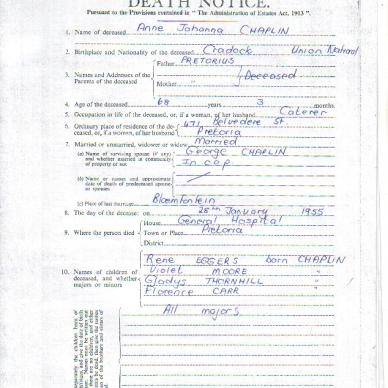 DEATH NOTICE.
Pursuant to the Provisions contained in "The Administration of Estates Act, 1913".
1. Name of deceased Anne Johanna CHAPLIN
2. Birthplace and Nationality of the deceased Cradock Union National
3. Names and Addresses of the Parents of the deceased Father PRETORIUS Deceased
Mother "
4. Age of the deceased 68 years 3 months
5. Occupation in life of the deceased, or, if a woman, of her husband Caterer
6. Ordinary place of residence of the deceased, or, if a woman, of her husband 471 Belvedere St
Pretoria
7. Married or unmarried, widower or widow Married
(a) Name of surviving spouse (if any) and whether married in community of property or not George CHAPLIN
In c.o.p
(b) Name or names and approximate date of death of predeceased spouse or spouses
(c) Place of last marriage Bloemfontein
8. The day of the decease: on 28th January 1955
9. Where the person died House General Hospital
Town or Place Pretoria
District
10. Names of children of deceased, and whether majors or minors
Rene EGGERS born CHAPLIN
Violet MOORE "
Gladys THORNHILL "
Florence CARR "
All majors